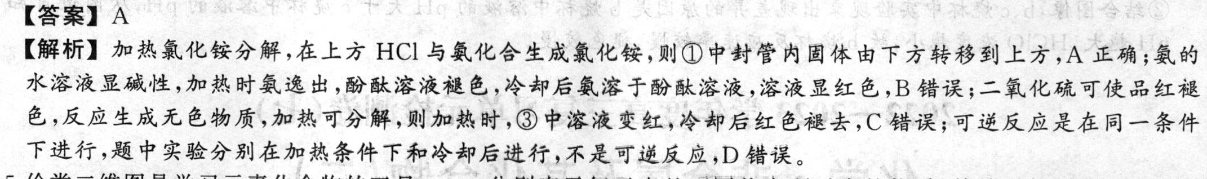 【答案】A
【解析】加热氯化铵分解,在上方 HCl 与氨化合生成氯化铵,则①中封管内固体由下方转移到上方,A 正确;氨的
水溶液显碱性,加热时氨逸出,酚酞溶液褪色,冷却后氨溶于酚酞溶液,溶液显红色,B 错误;二氧化硫可使品红褪
色,反应生成无色物质,加热可分解,则加热时,③中溶液变红,冷却后红色褪去,C 错误;可逆反应是在同一条件
下进行,题中实验分别在加热条件下和冷却后进行,不是可逆反应,D 错误。